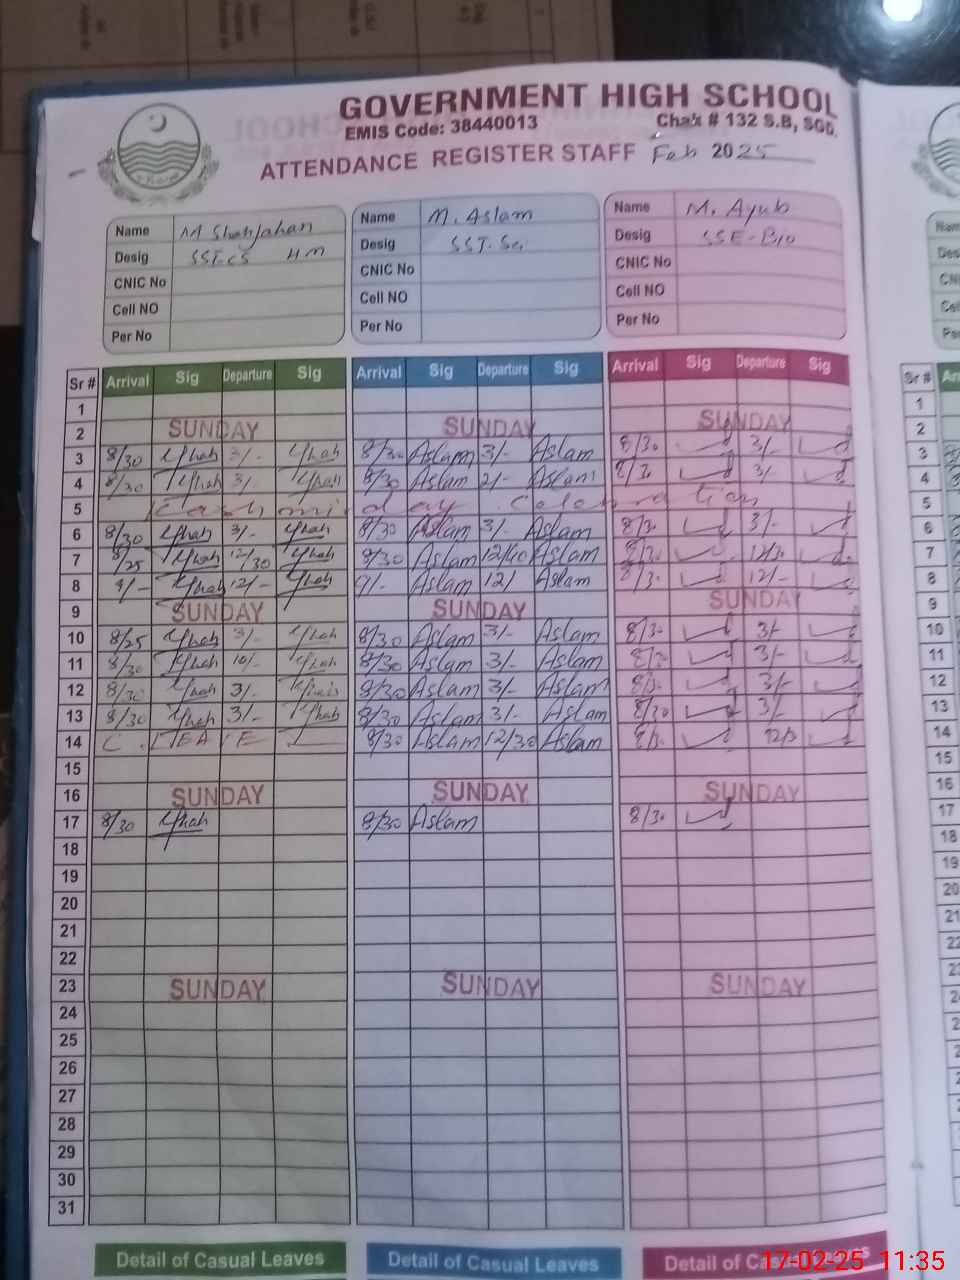 GOVERNMENT HIGH SCHOOL
EMIS Code: 38440013 Chak # 132 S.B, SGD.
ATTENDANCE REGISTER STAFF Feb 2025
Name M Shahjahan Name M. Aslam Name M. Ayub
Desig SST.CS H.M Desig SST.Sc Desig SSE-Bio
CNIC No CNIC No CNIC No
Cell NO Cell NO Cell NO
Per No Per No Per No
Sr # Arrival Sig Departure Sig Arrival Sig Departure Sig Arrival Sig Departure Sig
1
2 SUNDAY SUNDAY SUNDAY
3 8/30 3/- 8/30 Aslam 3/- Aslam 8/30 3/-
4 8/30 3/- 8/30 Aslam 2/- Aslam 8/30 3/-
5 Kashmir day Celebration
6 8/30 3/- 8/30 Aslam 3/- Aslam 8/30 3/-
7 8/25 12/30 8/30 Aslam 12/40 Aslam 8/30
8 9/- 12/- 9/- Aslam 12/ Aslam 8/30 12/-
9 SUNDAY SUNDAY SUNDAY
10 8/25 3/- 8/30 Aslam 3/- Aslam 8/30 3/-
11 8/30 10/- 8/30 Aslam 3/- Aslam 8/30 3/-
12 8/30 3/- 8/30 Aslam 3/- Aslam 8/30 3/-
13 8/30 3/- 8/30 Aslam 3/- Aslam 8/30 3/-
14 C. LEAVE 8/30 Aslam 12/30 Aslam 8/30
15
16 SUNDAY SUNDAY SUNDAY
17 8/30 8/30 Aslam 8/30
18
19
20
21
22
23 SUNDAY SUNDAY SUNDAY
24
25
26
27
28
29
30
31
Detail of Casual Leaves Detail of Casual Leaves Detail of Casual Leaves
17-02-25 11:35